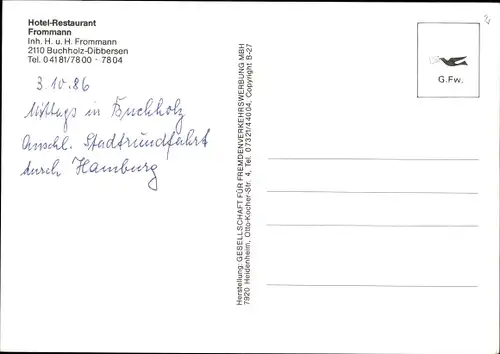 Hotel-Restaurant
Frommann
Inh. H. u. H. Frommann
2110 Buchholz-Dibbersen
Tel. 04181/7800 - 7804
3.10.86
Mittags in Buchholz
Anschl. Stadtrundfahrt
durch Hamburg
Herstellung: GESELLSCHAFT FÜR FREMDENVERKEHRSWERBUNG MBH
7920 Heidenheim, Otto-Kocher-Str. 4, Tel. 07321/44004, Copyright B-27
G.Fw.